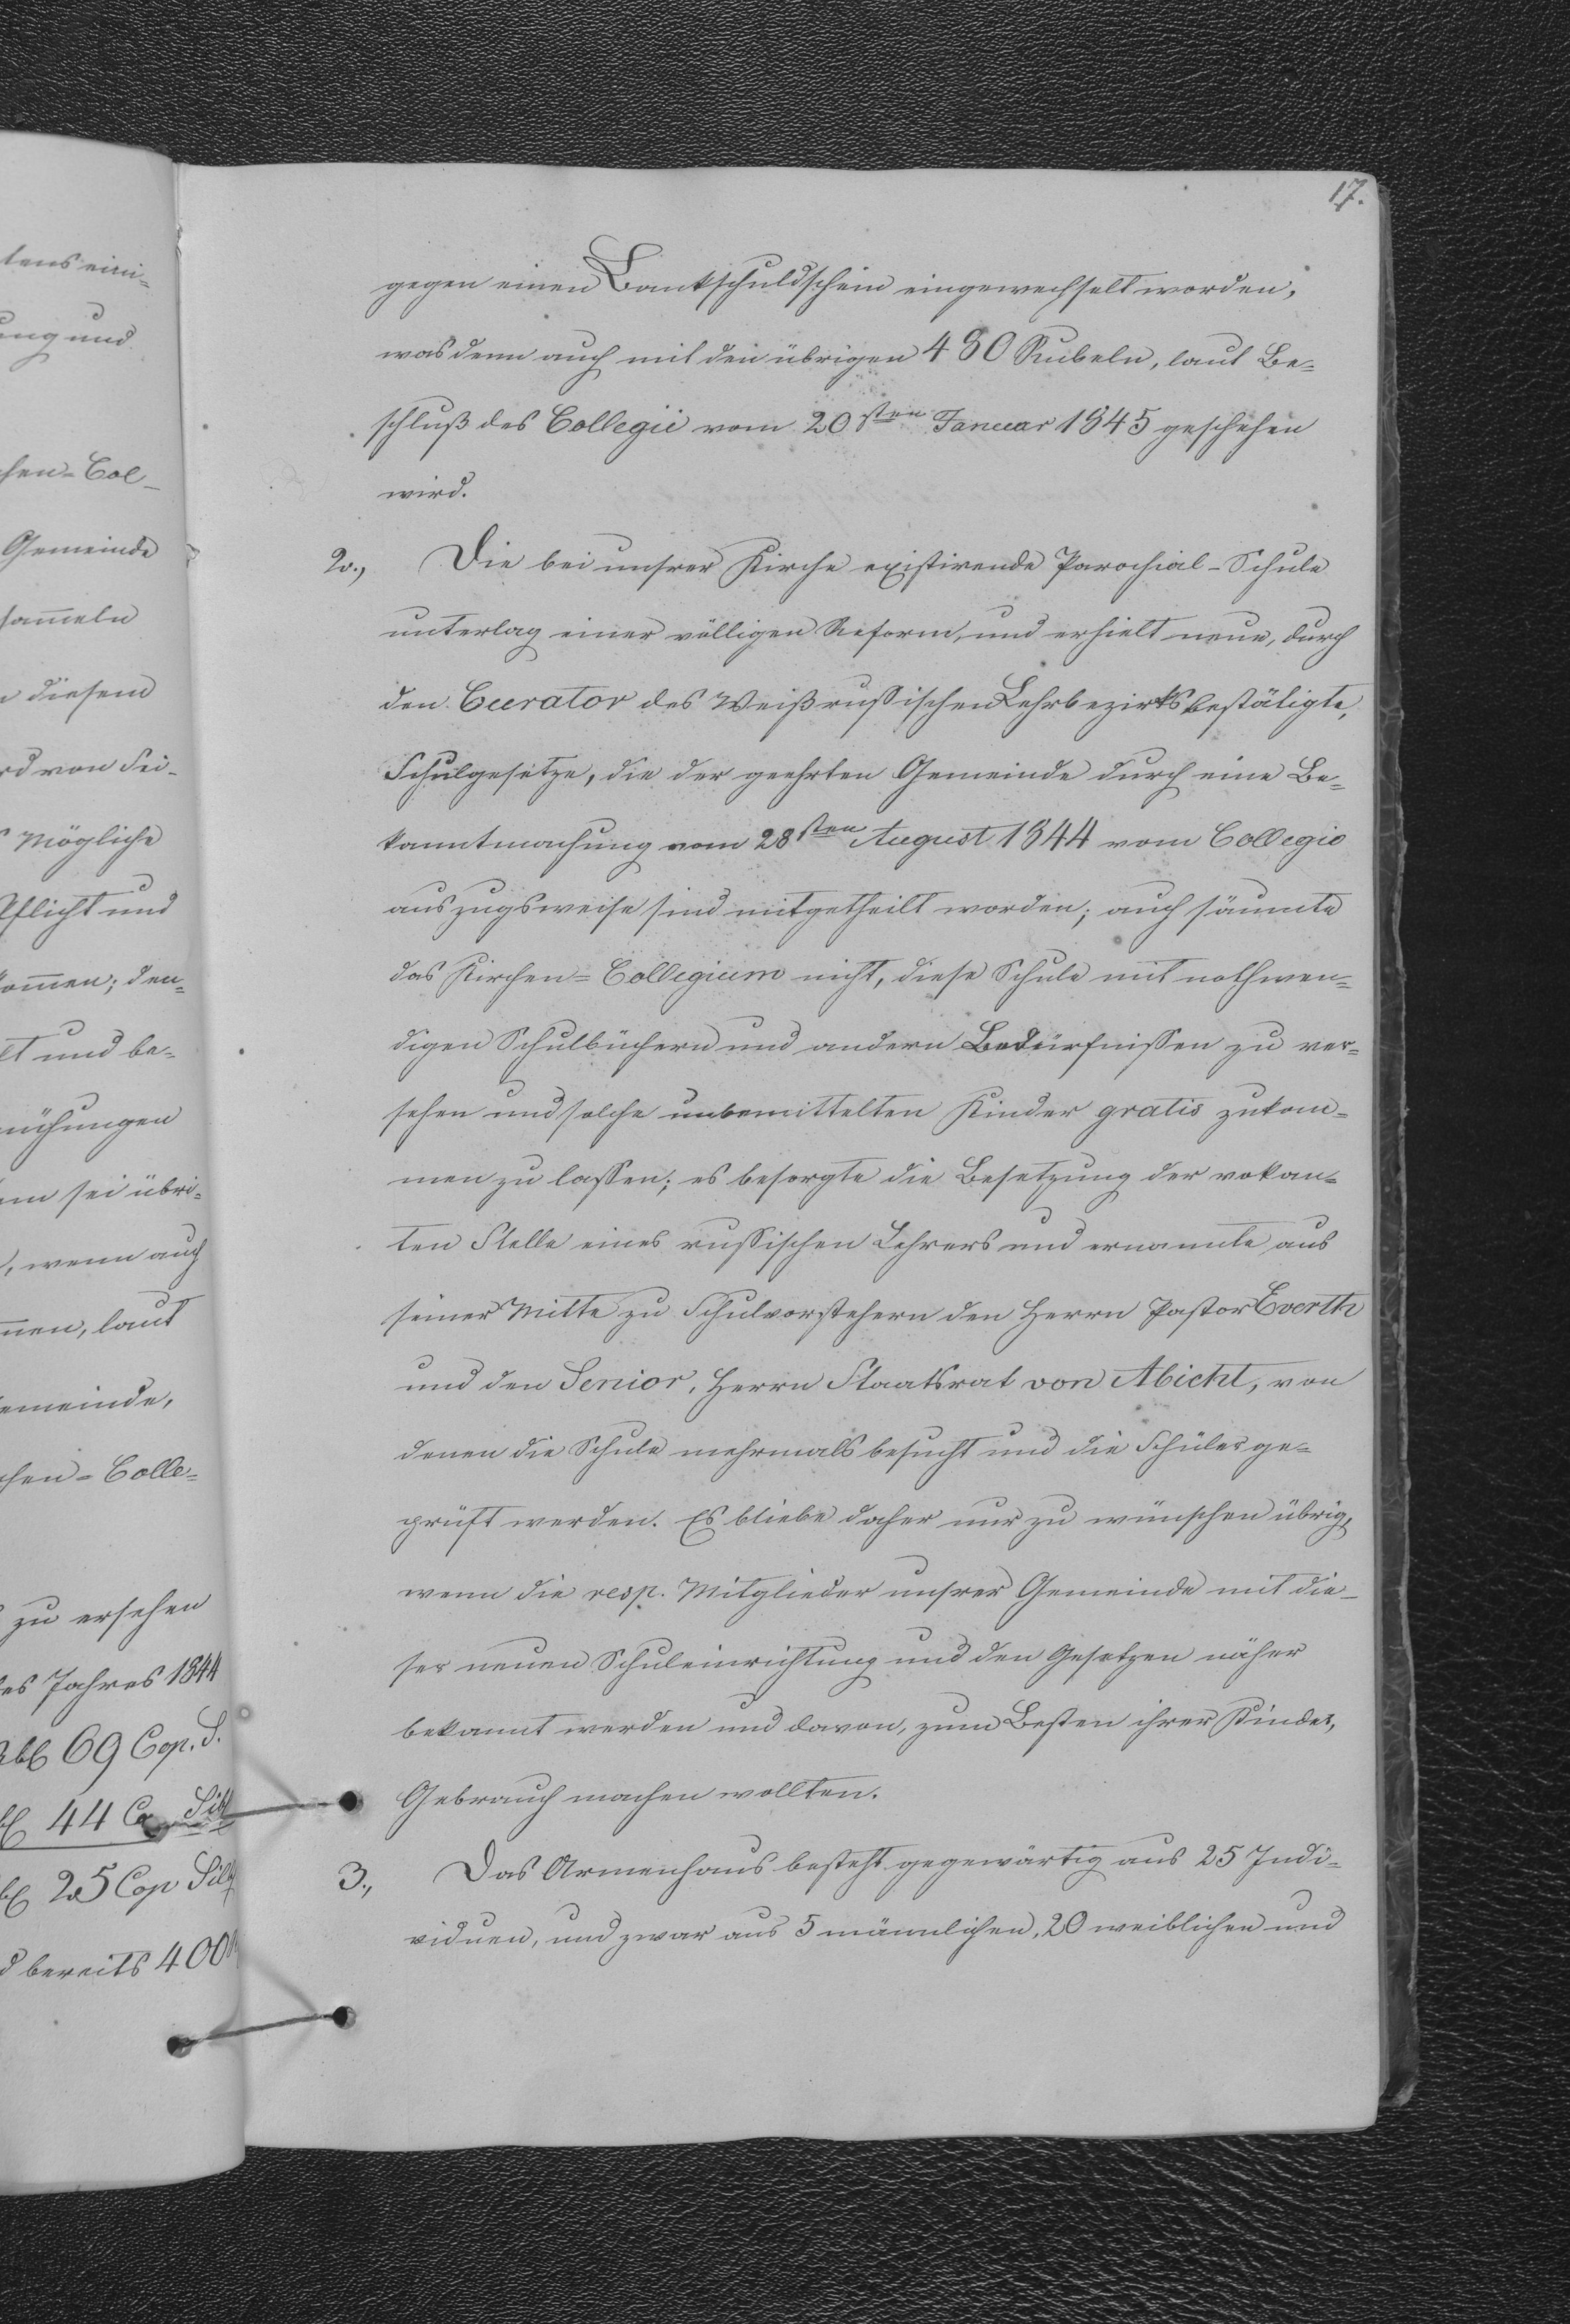 17.
gegen einen Bankschuldschein eingewechselt worden,
was denn auch mit den übrigen 480 Rubeln, laut Be=
schluß des Collegii vom 20sten Januar 1845 geschehen
wird.
2., Die bei unsrer Kirche existirende Parochial-Schule
unterlag einer völligen Reform, und erhielt neue, durch
den Curator des Weißrussischen Lehrbezirks bestätigte,
Schulgesetze, die der geehrten Gemeinde durch eine Be=
kanntmachung vom 28sten August 1844 vom Collegio
auszugsweise sind mitgetheilt worden; auch säumte
das Kirchen=Collegium nicht, diese Schule mit nothwen=
digen Schulbüchern und andern Bedürfnissen zu ver=
sehen und solche unbemittelten Kinder gratis zukom=
men zu lassen; es besorgte die Besetzung der vakan=
ten Stelle eines russischen Lehrers und ernannte aus
seiner Mitte zu Schulvorstehern den Herrn Pastor Everth
und den Senior, Herrn Staatsrat von Abicht, von
denen die Schule mehrmals besucht und die Schüler ge=
prüft werden. Es bliebe daher nur zu wünschen übrig,
wenn die resp. Mitglieder unsrer Gemeinde mit die-
ser neuen Schuleinrichtung und den Gesetzen näher
bekannt werden und davon, zum Besten ihrer Kinder,
Gebrauch machen wollten.
3., Das Armenhaus besteht gegenwärtig aus 25 Indi=
viduen, und zwar aus 5 männlichen, 20 weiblichen und
tens eini=
ung und
chen=Col-
Gemeinde
sammeln
diesem
rd von Sei-
Mögliche
Pflicht und
kommen; den=
lt und be=
mühungen
sei übri=
, wenn auch
men, laut
emeinde,
chen=Colle=
zu ersehen
des Jahres 1844
Rbl 69 Cop. S.
44 Co Silb
25 Cop Silb
bereits 400